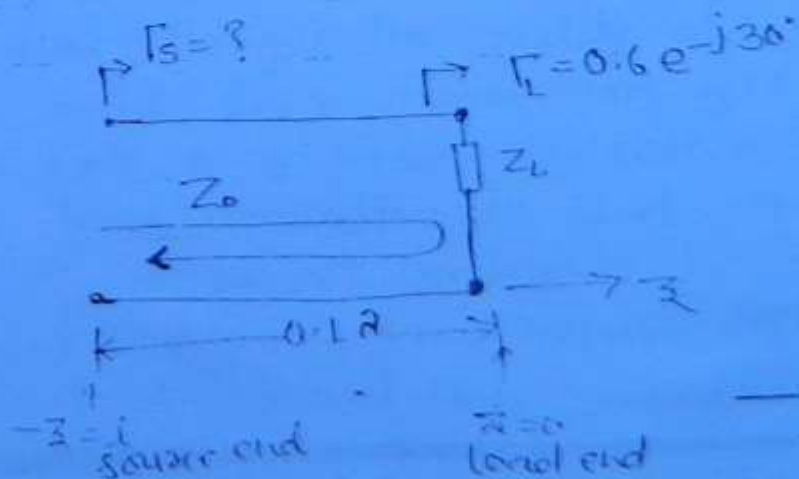 Γs = ?
ΓL = 0.6 e^-j30°
ZL
Z0
z
0.1λ
z = 0
source end
load end